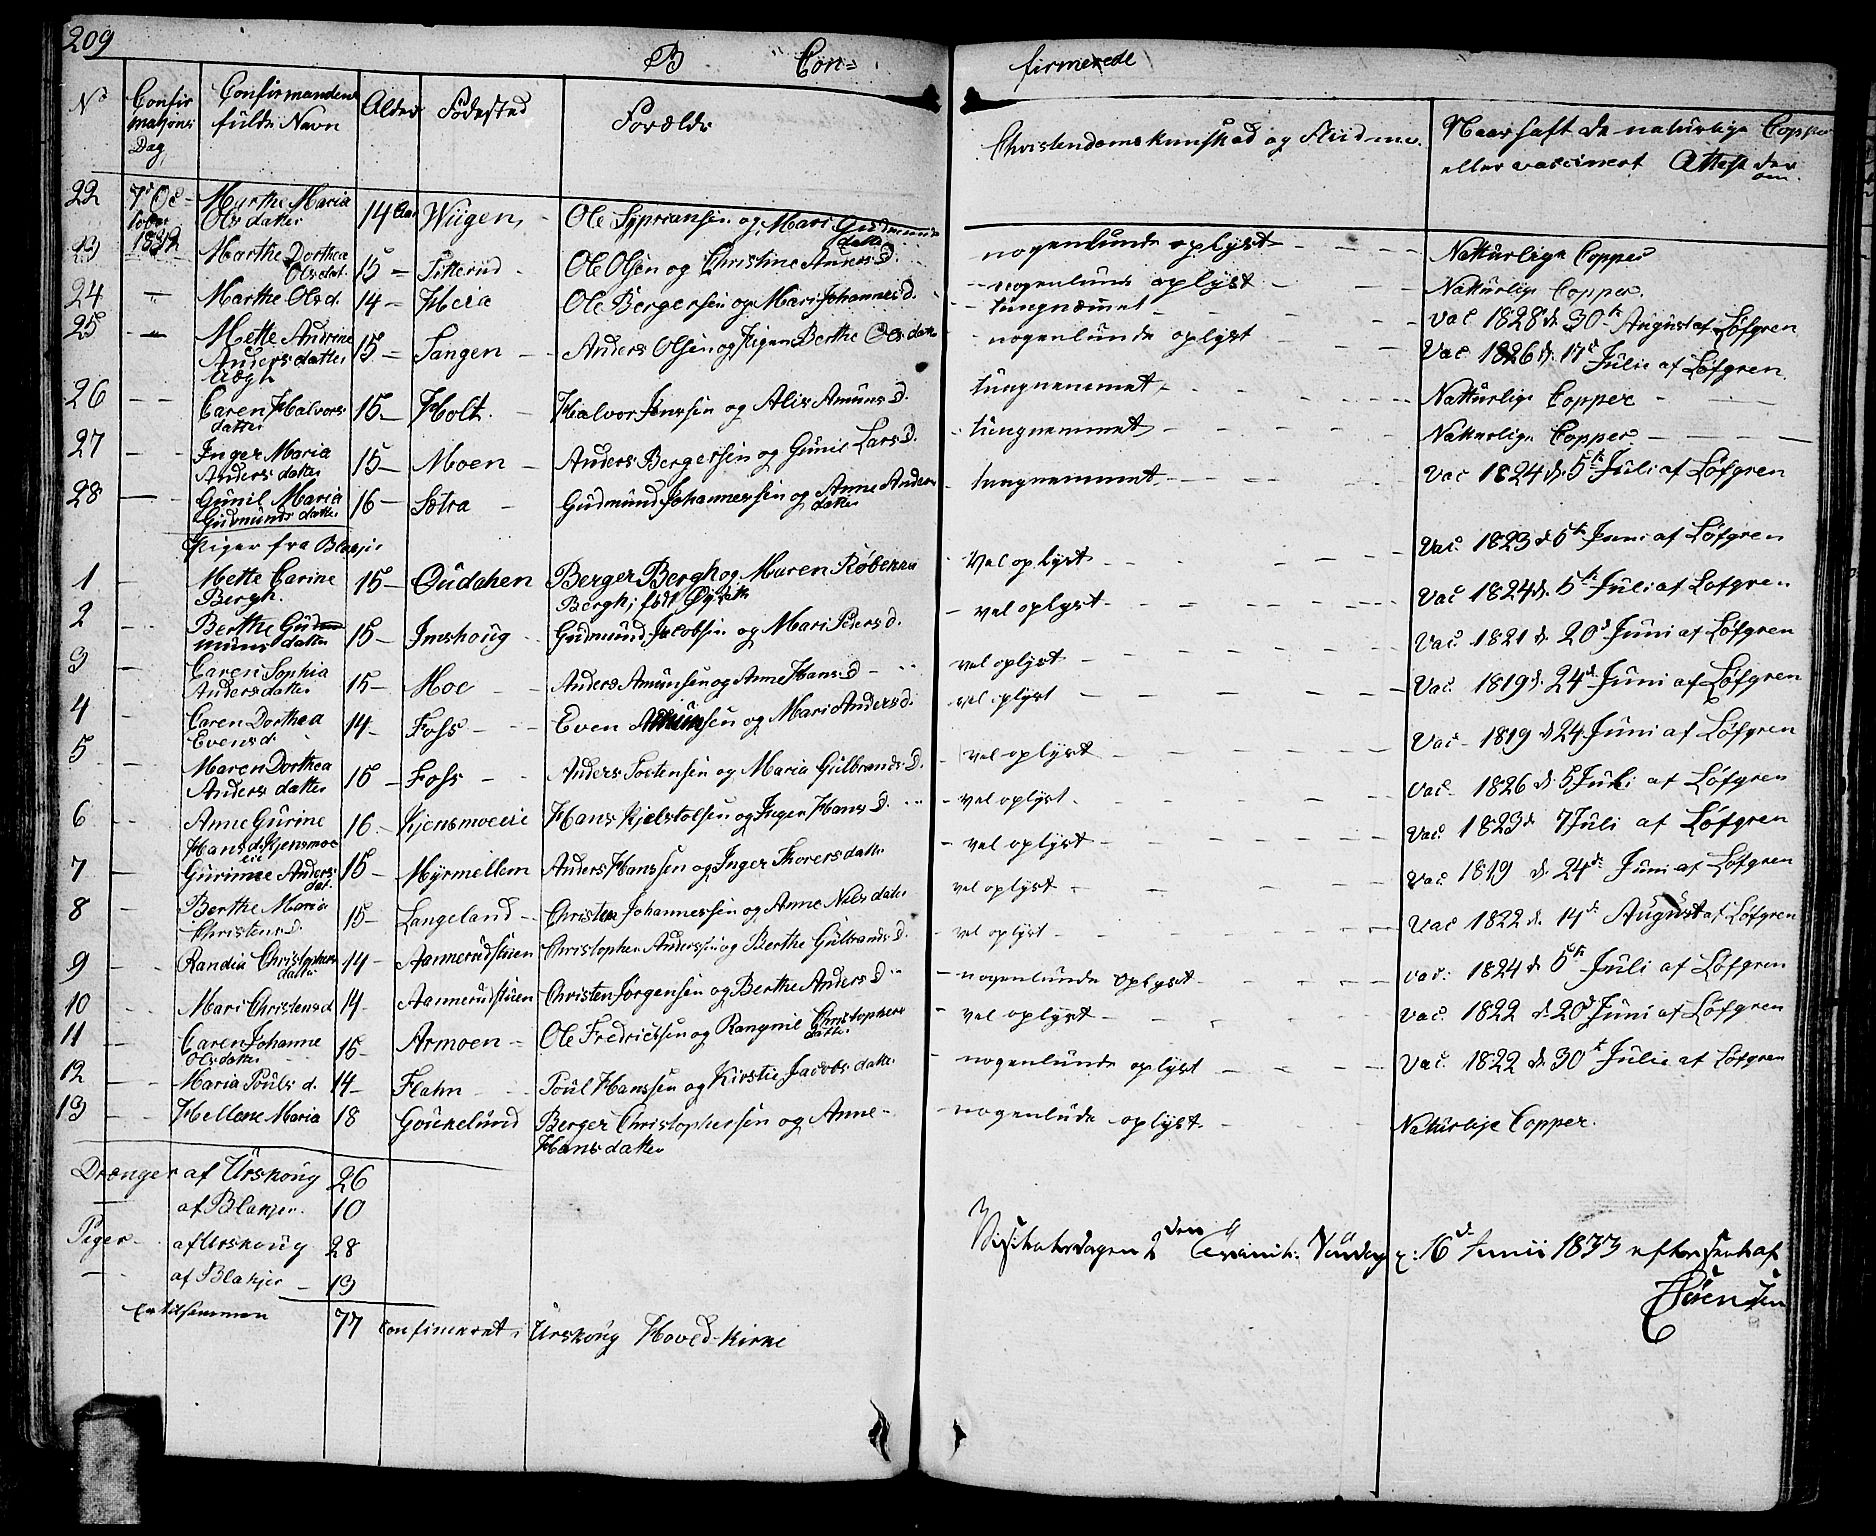 209
B Con=
firmerede
No
Confir
mations
Dag
Confirmandens
fulde Navn
Alder
Fødested
Forældre
Christendomskunskad og Flid m.v.
Naar haft de naturlige Copper
eller vaccinert Attest der
om.
22 7de Oc- Marthe Maria 14 Aar Wiigen, - Ole Sypriansen og Mari Gudmunds nogenlunde oplyst - - - Naturlige Copper
tober Ols datter datter
1832.
23 Marthe Dorthea 15 = Fitterud - Ole Olsen og Christine Anders D. - nogenlund oplyst - - - Naturlige Copper.
Ols dat.
24 - Marthe Ols d. 14 - Heia Ole Bergersen og Mari Johannes D. - tungnæmet - - - vac 1828 d. 30te August af Løfgren
25 - Mette Andrine 15 = Tangen - Anders Olsen og Pigen Berthe Ols datter - nogenlunde oplyst - - - Vac 1826 d. 17d Julii af Løfgren.
Anders datter
26 - - Caren Halvors 15 - Holt - Halvor Jenssen og Alis Amuns D. tungnemmet - - - Naturlige Copper - -
datter
27 - - Inger Maria 15 - Moen - Anders Bergersen og Gunil Lars D. - tungnemmet - - - Naturlige Copper - - -
Anders datter
28 - Gunil Maria 16 - Sotra - Gudmund Johannessen og Anne Anders - tungnemmet - - - Vac 1824 d. 5te Juli af Løfgren
Gudmunds datter datter
Piger fra Blakjer
1 - Mette Carine 15 - Oudahen Berger Bergh og Maren - Vel oplyst - - - Vac. 1823 d 5te Juni af Løfgren
Bergh. Bergh; født
2 - - Berthe Gud= 15 - Imshoug - Gudmund Jacobsen og Mari Peders d. - vel oplyst - - - Vac 1824 d. 5te Juli af Løfgren
muns datter
3 - Caren Sophia 15 - Moe - - Anders Amunsen og Anne Hans D - vel oplyst - - - Vac 1821 d. 20d Juni af Løfgren
Anders datter
4 - Caren Dorthea 14 - Foss - - Even Amunsen og Mari Anders d. vel oplyst - - - Vac. 1819 d. 24d Juni af Løfgren
Evens d.
5 - Maren Dorthea 15 - Foss - - Anders Tostensen og Maria Gulbrands D. - vel oplyst - - - Vac - 1819 d 24 Juni af Løfgren
Anders datter
6 - - Anne Gurine 16 - Kjensmoeeie Hans Kjelstolsen og Ingen Hans d. - vel oplyst - - - Vac. 1826 d. 5 Juli af Løfgren
Hans d. Kjensmoe
eie
7 - - Gurine Anders 15 - Myrmellem Anders Hanssen og Inger Thorers datter - vel oplyst - - - vac. 1823 d 7 Juli af Løfgren
dat.
8 - - Berthe Maria 15 - Langeland - Christen Johannessen og Anne Nils datter vel oplyst - - - vac. 1819 d. 24de Juni af Løfgren
Christens D.
9 - - Randia Christophers 14 - Aannerudstuen Christopher Anderssen og Berthe Gulbrands D. - vel oplyst - - - vac 1822 d. 14de August af Løfgren
datter
10 - - Mari Christens d 14 - Aannerudstuen Christen Jørgensen og Berthe Anders D - - nogenlunde oplyst - - - vac. 1824 d. 5te Juli af Løfgren
11 - - Caren Johanne 15 - Armoen - Ole Fredricksen og Rangnil Christophers - vel oplyst - - - vac. 1822 d. 20d Juni af Løfgren
Ols datter datter
12 - - Maria Pouls d. 14 - Flahn - Poul Hanssen og Kirstie Jacobs datter - nogenlunde oplyst - - - Vac. 1822 d. 30te Julie af Løfgren
13 - - Hellene Maria 18 Gouhelund Berger Christophersen og Anne - - nogenlude oplyst - - - Naturlije Copper.
Hans datter
Drænger af Urskoug 26
- af Blakjer. 10
Piger - af Urskoug 28
- af Blakjer - 13
tilsammen 77 Confirmeret i Urskoug Hoved-Kirke
Visitatsdagen 2den Trinit: Søndag 16de Junii 1833 efterseet af
Sørensen